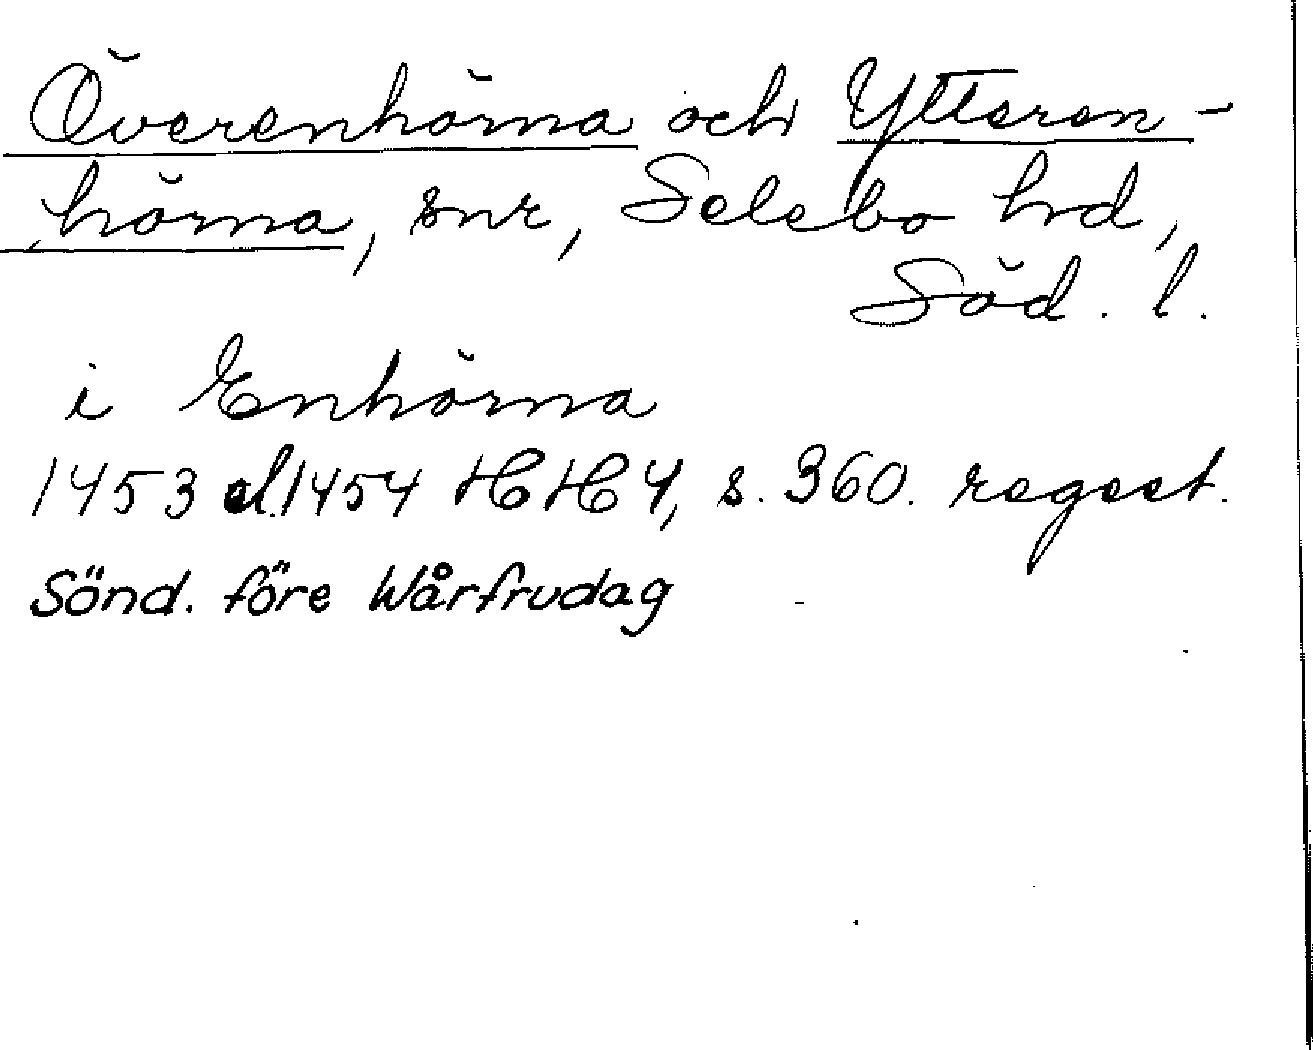 Överenhörna och Ytteren-
hörna, snr, Selebo hrd,
Söd. l.
i Enhörna
1453 el. 1454 HH 4, s. 360. regest.
Sönd. före Wårfrudag